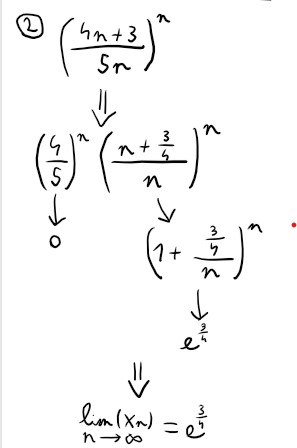 ② ((4n+3)/(5n))^n
⇓
(4/5)^n ((n + 3/4)/n)^n
↓ ↘
0 (1 + (3/4)/n)^n
↓
e^(3/4)
⇓
lim(xn) = e^(3/4)
n→∞